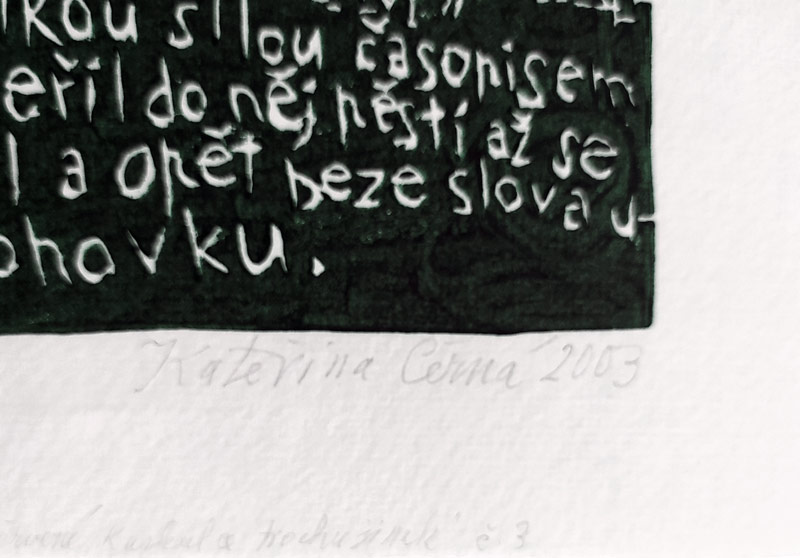 kou sílou časopisem
eřil do něj pěstí až se
l a opět beze slova u-
ohovku.
Kateřina Černá 2003
č 3